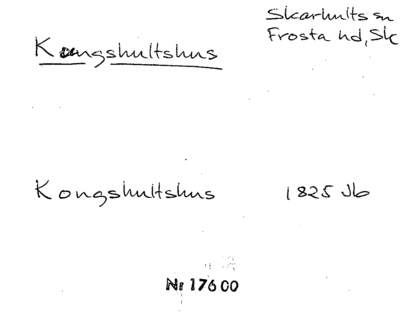 Skarhults sn
Frosta hd, Sk
Kungshultshus
Kongshultshus 1825 Jb
Nr 17600